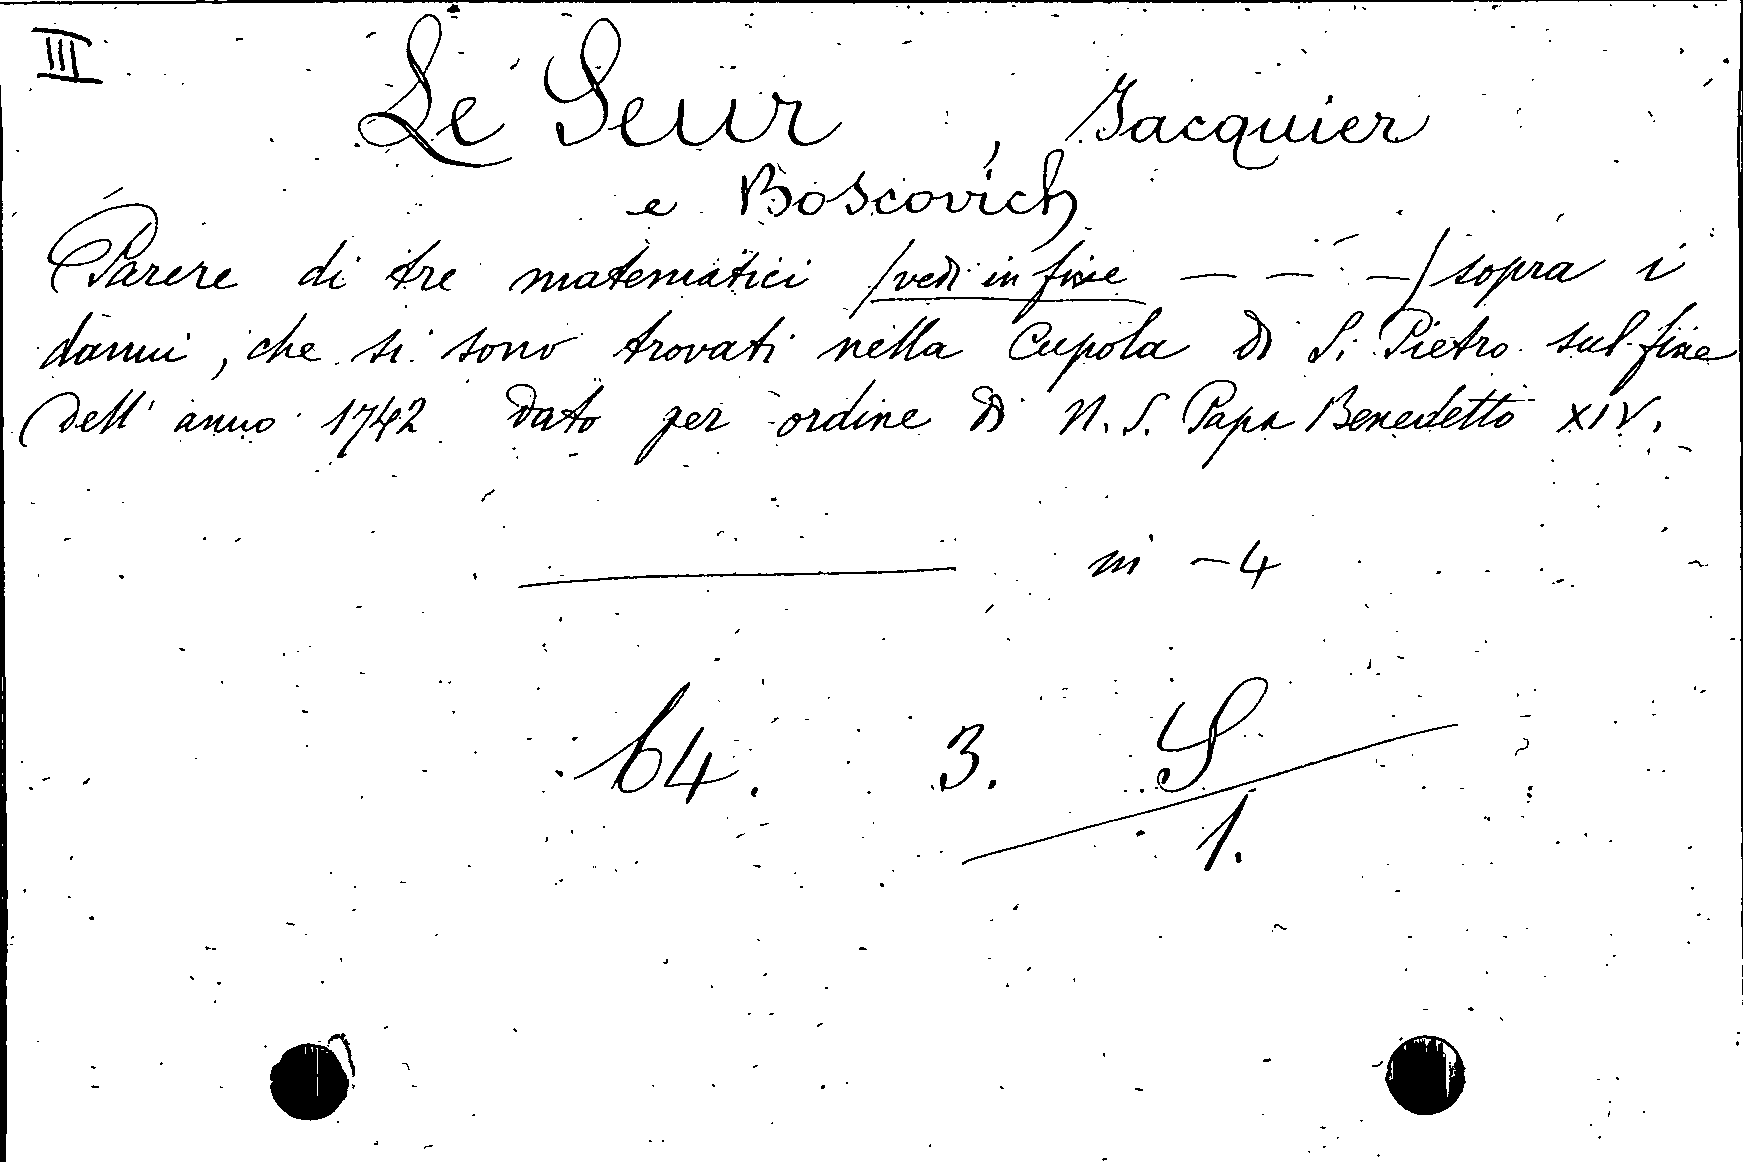 III
Le Seur , Jacquier
e Boscovich
Parere di tre matematici /vedi in fine — — —/ sopra i
danni, che si sono trovati nella Cupola di S. Pietro sul fine
dell' anno 1742 dato per ordine di N. S. Papa Benedetto XIV.
in -4
64. 3. S
1.